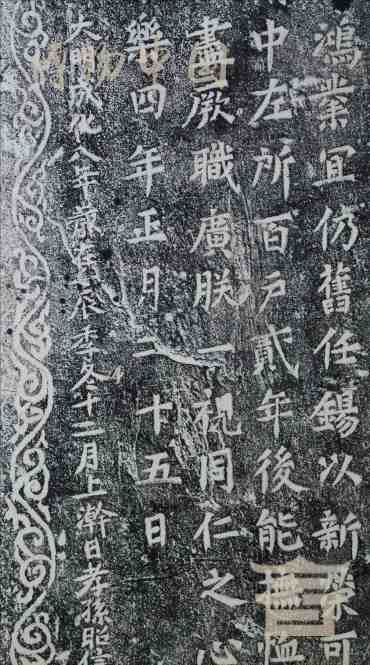 鴻業宜仿舊任錫以新榮可
中左所百戶貳年後能撫
盡厥職廣朕一視同仁之心
樂四年正月二十五日
大明成化八年歲壬辰季冬十二月上澣日孝孫昭信